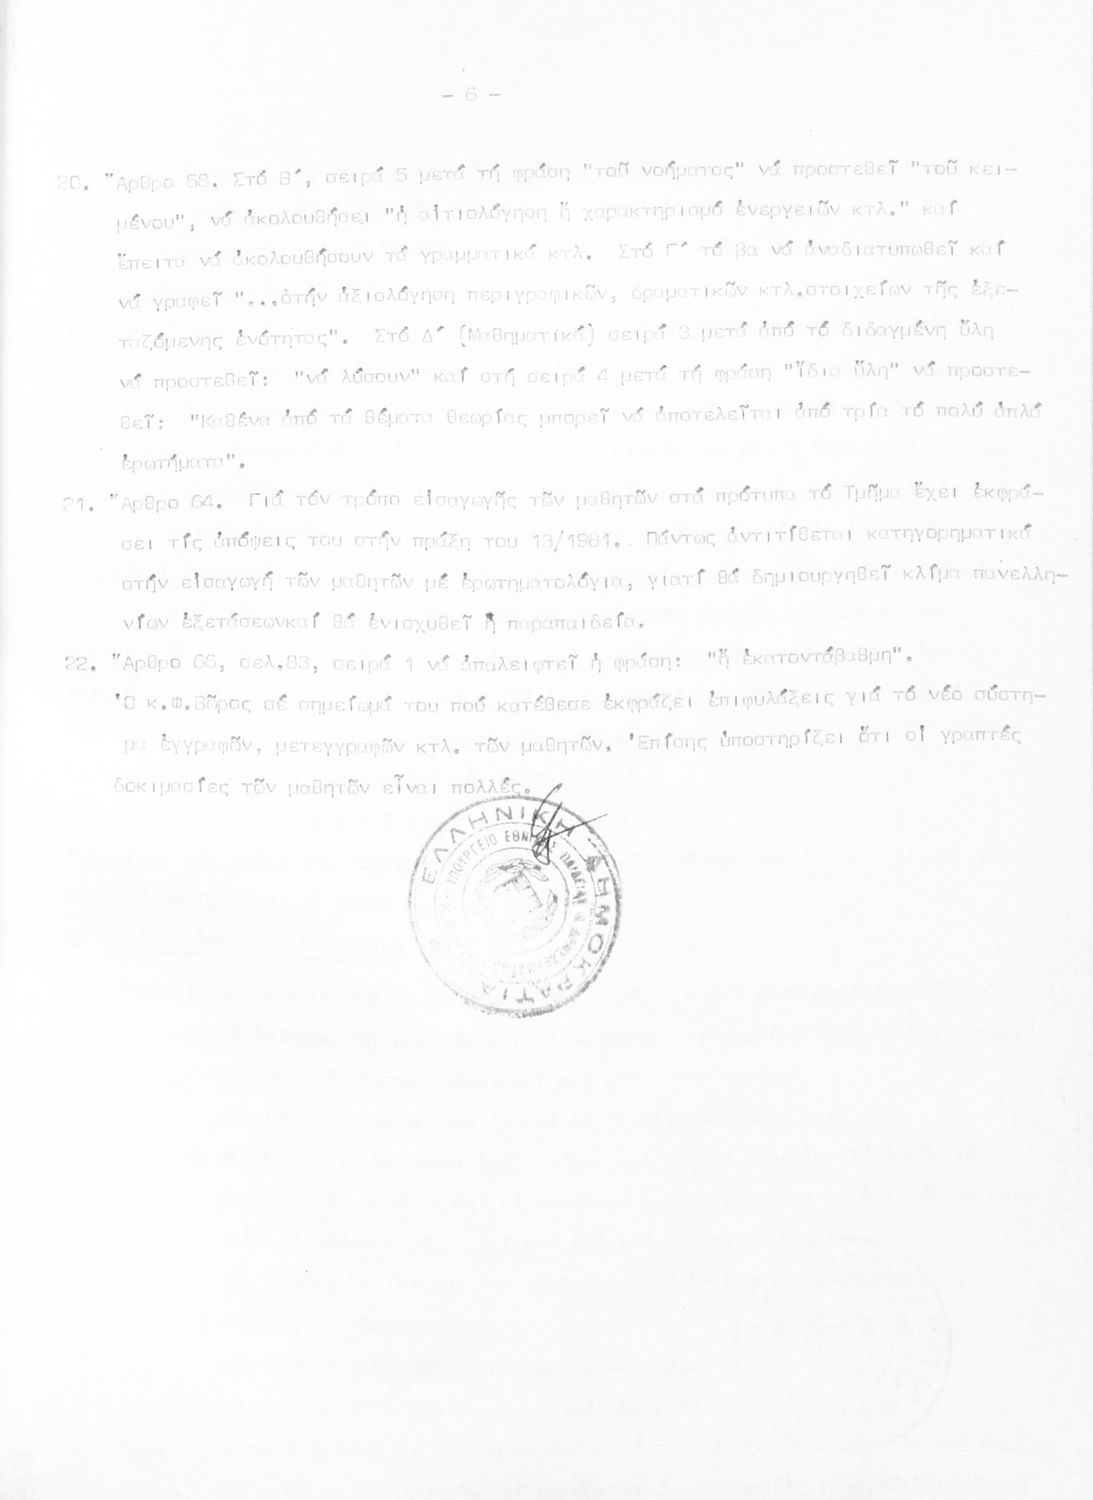 - 6 -
20. "Αρθρο 58. Στό Β΄, σειρά 5 μετά τή φράση "τοῦ νοήματος" νά προστεθεῖ "τοῦ κει-
μένου", νά ἀκολουθήσει "ἡ αἰτιολόγηση ἤ χαρακτηρισμό ἐνεργειῶν κτλ." καί
ἔπειτα νά ἀκολουθήσουν τά γραμματικά κτλ. Στό Γ΄ τό βα νά ἀναδιατυπωθεῖ καί
νά γραφεῖ "...στήν ἀξιολόγηση περιγραφικῶν, δραματικῶν κτλ.στοιχείων τῆς ἐξε-
ταζόμενης ἑνότητας". Στό Δ΄ (Μαθηματικά) σειρά 3 μετά ἀπό τό διδαγμένη ὕλη
νά προστεθεῖ: "νά λύσουν" καί στή σειρά 4 μετά τή φράση "ἴδια ὕλη" νά προστε-
θεῖ: "Καθένα ἀπό τά θέματα θεωρίας μπορεῖ νά ἀποτελεῖται ἀπό τρία τό πολύ ἁπλά
ἐρωτήματα".
21. "Αρθρο 64. Γιά τόν τρόπο εἰσαγωγῆς τῶν μαθητῶν στά πρότυπα τό Τμῆμα ἔχει ἐκφρά-
σει τίς ἀπόψεις του στήν πράξη του 13/1981. Πάντως ἀντιτίθεται κατηγορηματικά
στήν εἰσαγωγή τῶν μαθητῶν μέ ἐρωτηματολόγια, γιατί θά δημιουργηθεῖ κλίμα πανελλη-
νίων ἐξετάσεωνκαί θά ἐνισχυθεῖ ἡ παραπαιδεία.
22. "Αρθρο 66, σελ.83, σειρά 1 νά ἀπαλειφτεῖ ἡ φράση: "ἤ ἑκατοντάβαθμη".
Ὁ κ.Φ.Βῶρος σέ σημείωμά του πού κατέθεσε ἐκφράζει ἐπιφυλάξεις γιά τό νέο σύστη-
μα ἐγγραφῶν, μετεγγραφῶν κτλ. τῶν μαθητῶν. Ἐπίσης ὑποστηρίζει ὅτι οἱ γραπτές
δοκιμασίες τῶν μαθητῶν εἶναι πολλές.
ΕΛΛΗΝΙΚΗ ΔΗΜΟΚΡΑΤΙΑ
ΥΠΟΥΡΓΕΙΟ ΕΘΝΙΚΗΣ ΠΑΙΔΕΙΑΣ & ΘΡΗΣΚΕΥΜΑΤΩΝ